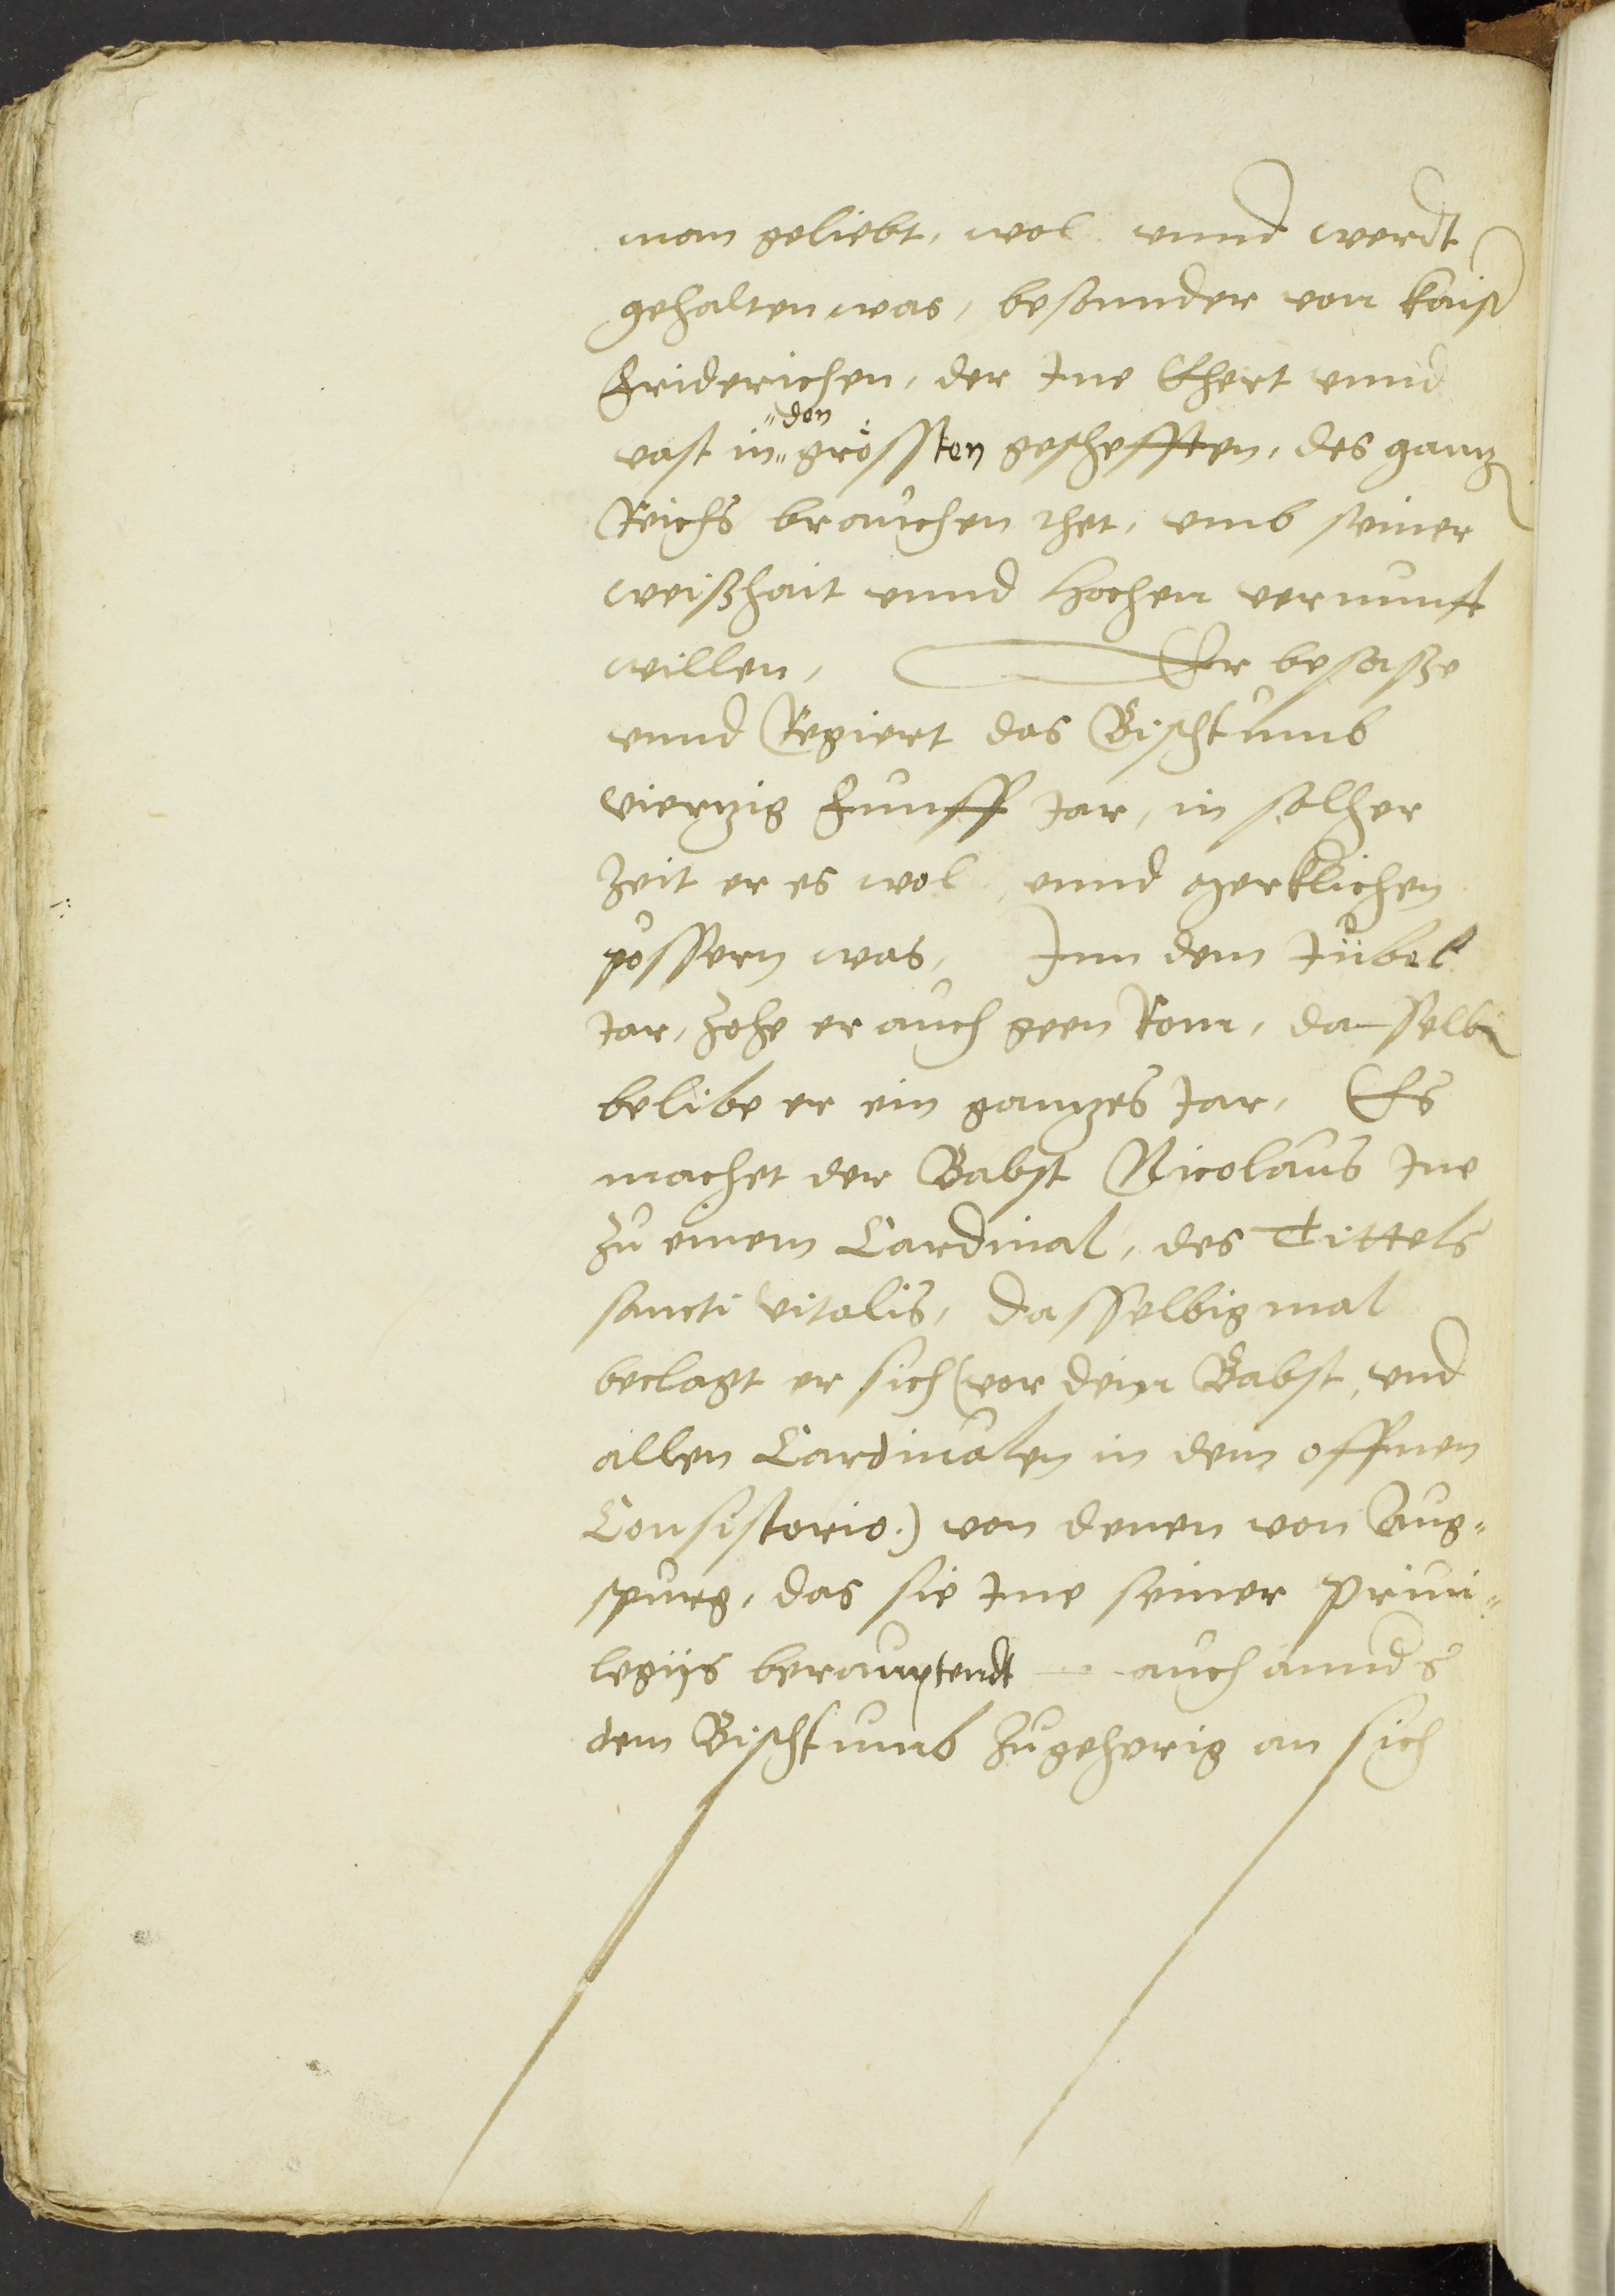 man geliebt, wol vnnd werdt
gehalten was, besonnder von kaiß
Friderichen, der Jne Ehert vnnd
vast in den grössten geschefften, des gantz
Reichs brauchen thet, vmb seiner
weißhait vnnd hochen vernunft
willen, Er besasze
vnnd Regiert das Bischtumb
viertzig funff Jar, in solher
Zeit er es wol vnnd
pessern was, Inn dem Jubel
Jar, zohe er auch geen Rom, daselbs
belibe er ein gantzes Jar, Es
machet der Babst Nicolaus Jne
zu einem Cardinal, des Tittels
sancti vitalis, dasselbig mal
beclagt er sich (vor dem Babst, vnd
allen Cardinalen in dem offnen
Consistorio.) von denen von Aug-
spurg, das sie Jne seiner priui-
legijs berauptendt auch annders
dem Bischtumb zugeherig an sich